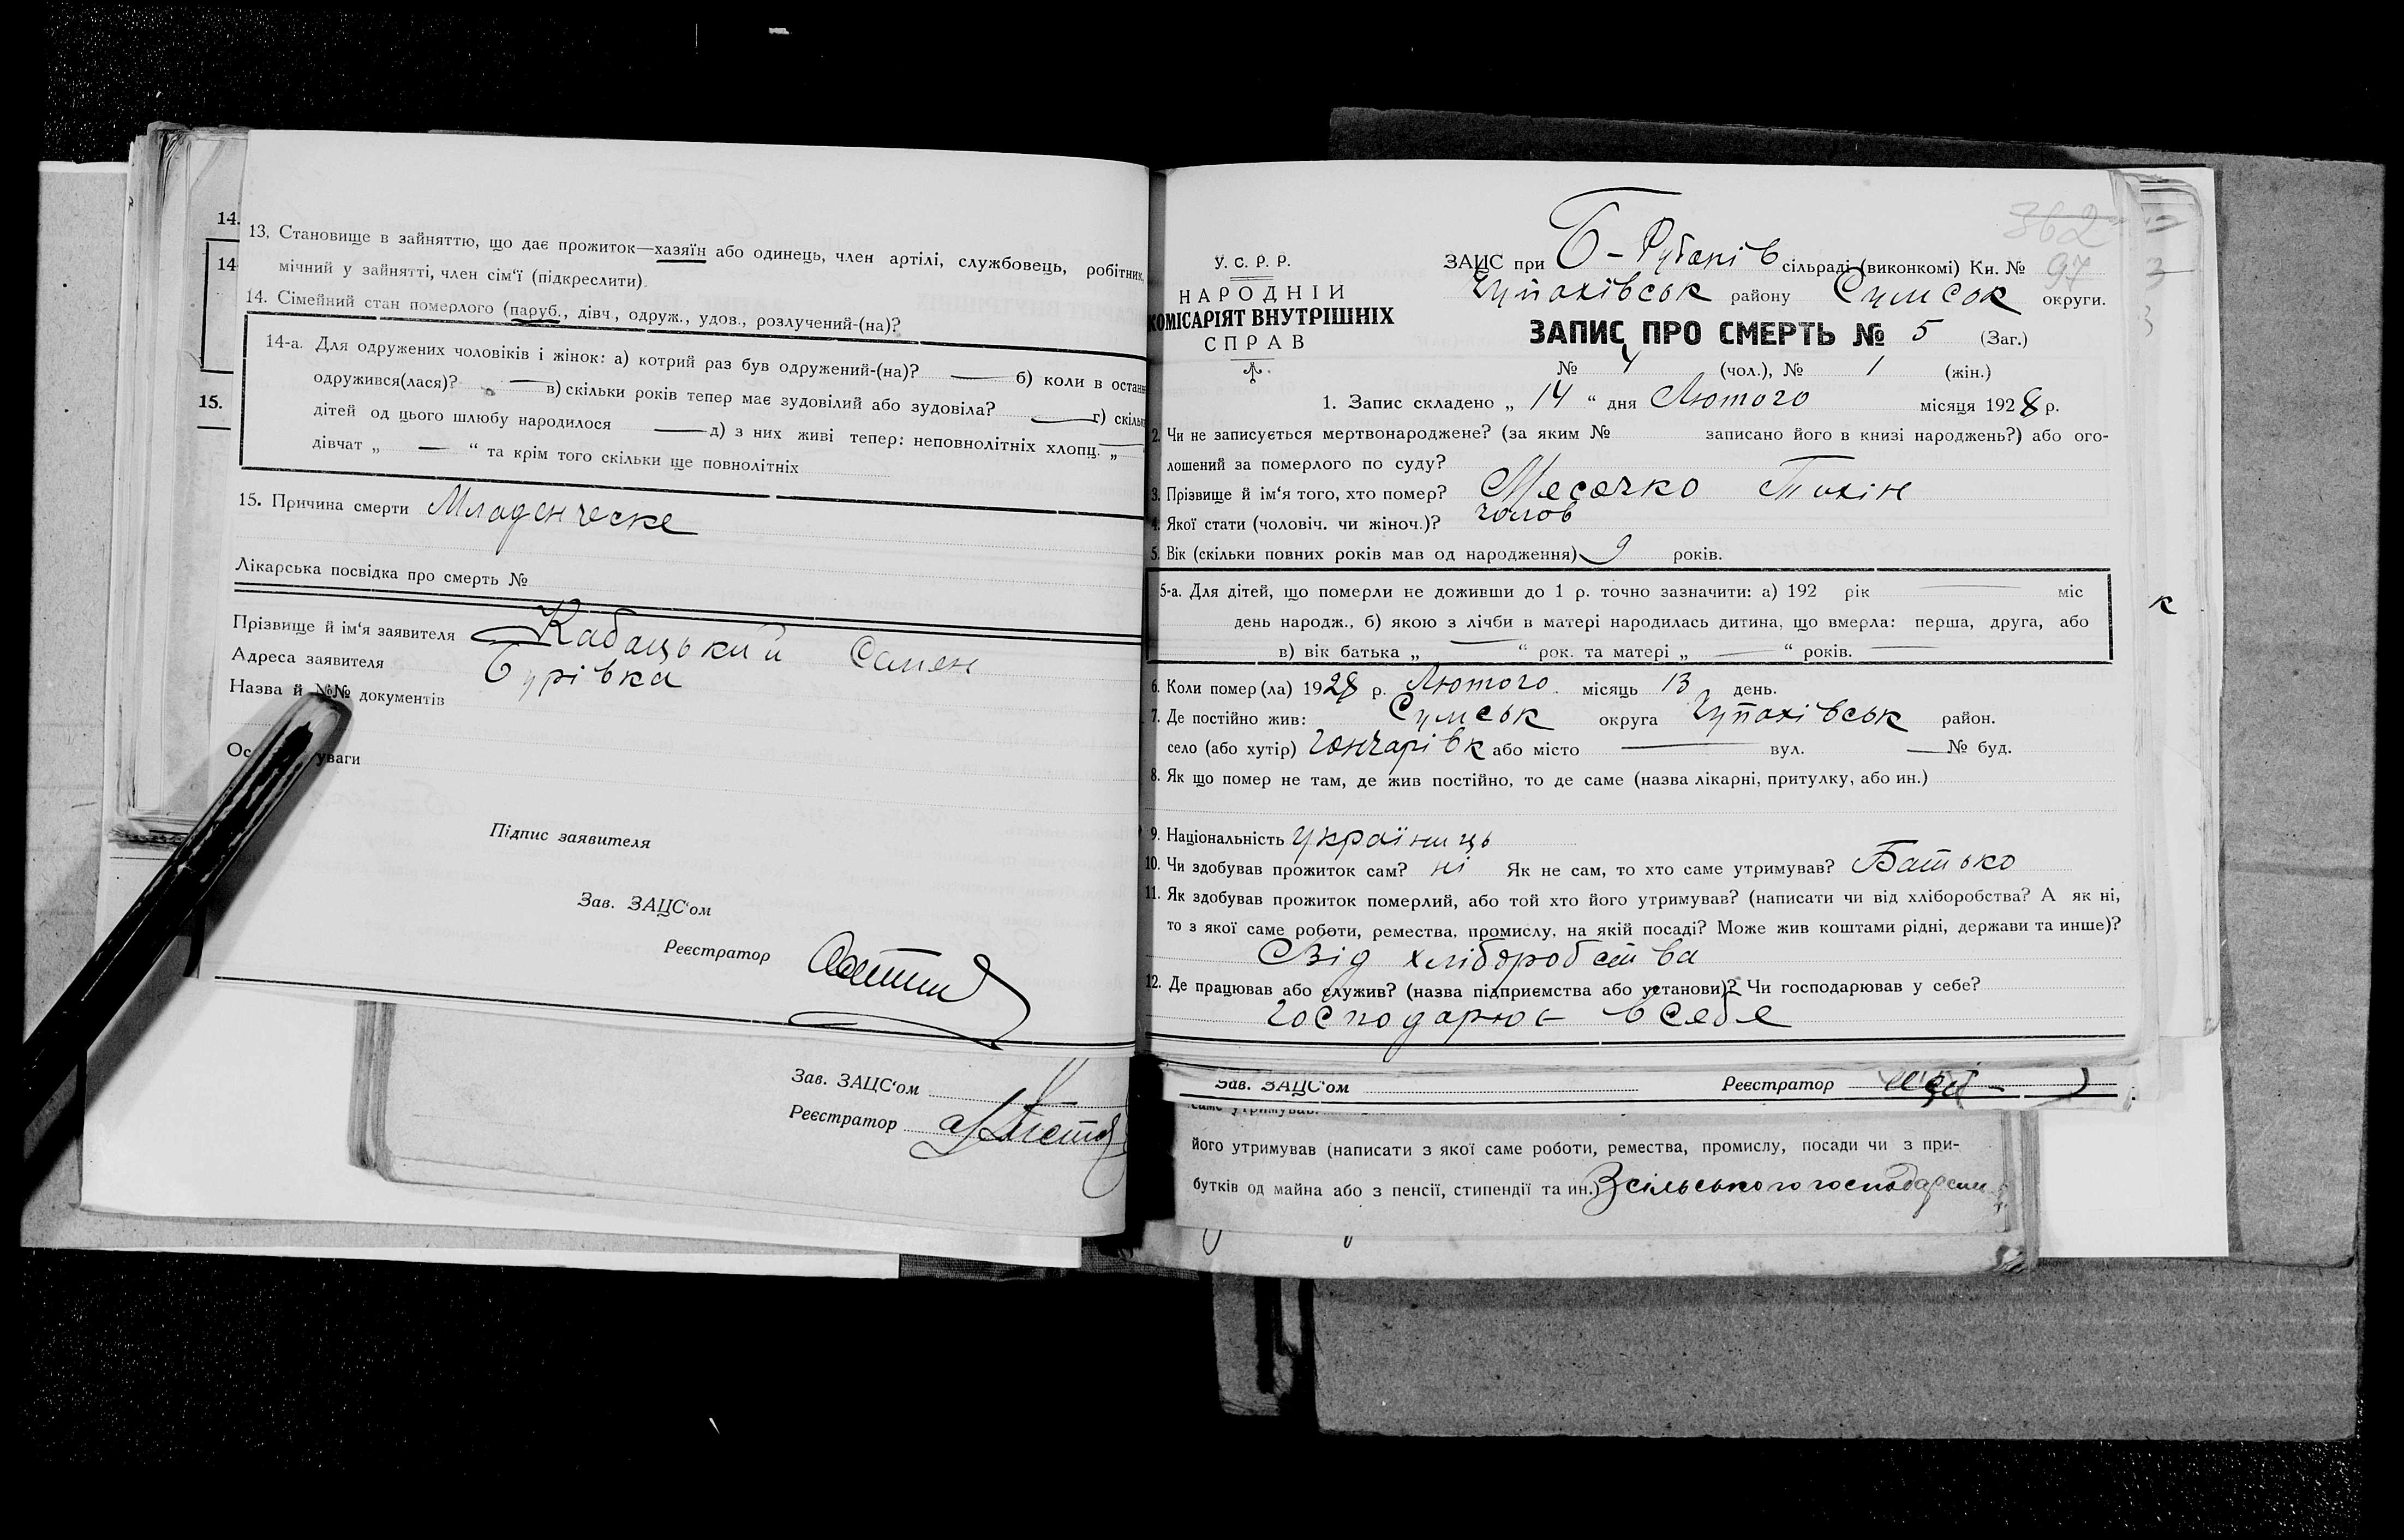 14.
13. Становище в зайняттю, що дає прожиток—хазяїн або одинець, член артілі, службовець, робітник,
14
мічний у зайнятті, член сім'ї (підкреслити).
14. Сімейний стан померлого (паруб., дівч., одруж., удов., розлучений-(на)?
14-а. Для одружених чоловіків і жінок: а) котрий раз був одружений-(на)? — б) коли в останн
одружився(лася)? — в) скільки років тепер має зудовілий або зудовіла? — г) скільк
15.
дітей од цього шлюбу народилося — д) з них живі тепер: неповнолітніх хлопц. „ —
дівчат „ — “ та крім того скільки ще повнолітніх
15. Причина смерти Младенческе
Лікарська посвідка про смерть №
Прізвище й ім'я заявителя Кабацький Семен
Адреса заявителя Бурівка
Назва й №№ документів
Ос уваги
Підпис заявителя
Зав. ЗАЦС'ом
Реєстратор
Зав. ЗАЦС'ом
Реєстратор
362
У. С. Р. Р.
НАРОДНІЙ
КОМІСАРІЯТ ВНУТРІШНІХ
СПРАВ
ЗАЦС при Б-Рубанів сільраді (виконкомі) Кн. № 97
Чупахівськ району Сумсок округи.
ЗАПИС ПРО СМЕРТЬ № 5 (Заг.)
№ 4 (чол.), № 1 (жін.)
1. Запис складено „ 14 “ дня Лютого місяця 1928 р.
2. Чи не записується мертвонароджене? (за яким № записано його в книзі народжень?) або ого-
лошений за померлого по суду?
3. Прізвище й ім'я того, хто помер? Месечко Тихін
4. Якої стати (чоловіч. чи жіноч.)? чолов
5. Вік (скільки повних років мав од народження) 9 років.
5-а. Для дітей, що померли не доживши до 1 р. точно зазначити: а) 192 рік — міс
день народж., б) якою з лічби в матері народилась дитина, що вмерла: перша, друга, або
— в) вік батька „ — “ рок. та матері „ — “ років. —
к
6. Коли помер(ла) 1928 р. Лютого місяць 13 день.
7. Де постійно жив: Сумськ округа Чупахівськ район.
село (або хутір) Гончарівк або місто — вул. — № буд.
8. Як що помер не там, де жив постійно, то де саме (назва лікарні, притулку, або ин.)
9. Національність Українець
10. Чи здобував прожиток сам? ні Як не сам, то хто саме утримував? Батько
11. Як здобував прожиток померлий, або той хто його утримував? (написати чи від хліборобства? А як ні,
то з якої саме роботи, ремества, промислу, на якій посаді? Може жив коштами рідні, держави та инше)?
Звід хліборобства
12. Де працював або служив? (назва підприємства або установи)? Чи господарював у себе?
Господарює в себе
Зав. ЗАЦС'ом Реєстратор
саме утримував.
його утримував (написати з якої саме роботи, ремества, промислу, посади чи з при-
бутків од майна або з пенсії, стипендії та ин.) З сільського господарств